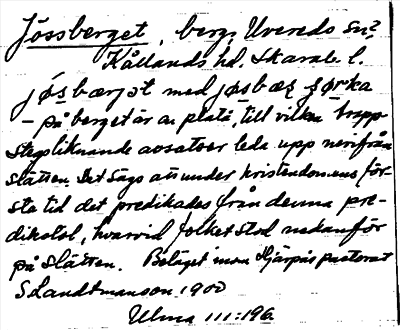 Jössberget, berg, Uvereds sn?
Kållands hd. Skarab. l.
jøsbærjət med jøsbæs
– på berget är en platå, till vilken trapp-
stegsliknande avsatser leda upp nerifrån
slätten. Det sägs att under kristendomens för-
sta tid det predikades från denna pre-
dikstol, hvarvid folket stod nedanför
på slätten. Beläget inom Hjärpås pastorat
S Landtmanson 1900
Ulma 111:196.